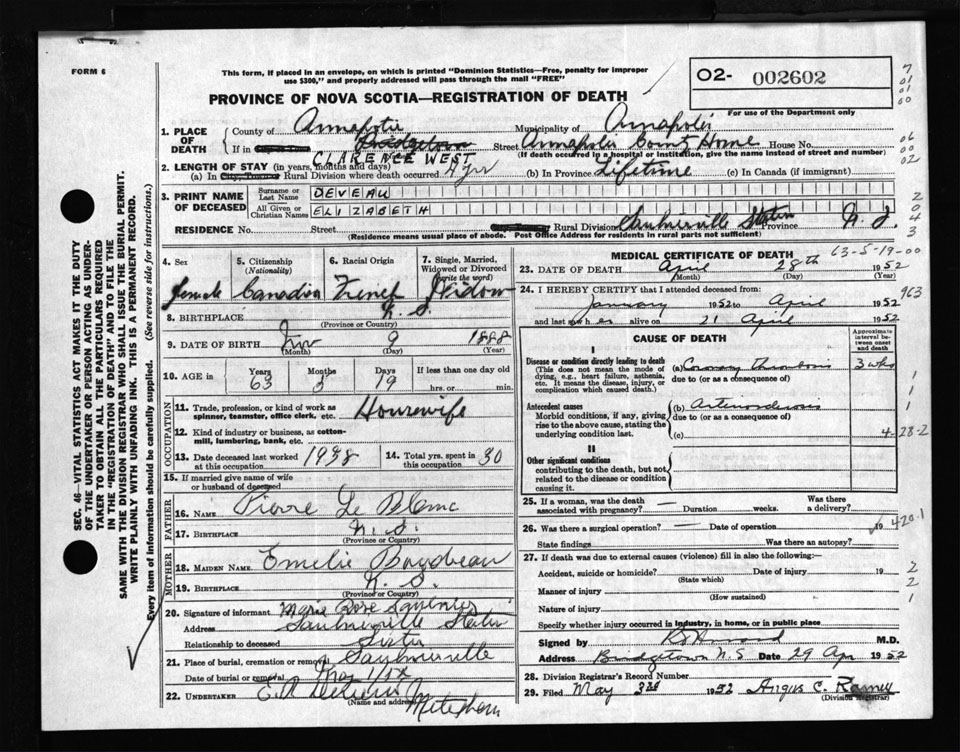 FORM 6
This form, if placed in an envelope, on which is printed "Dominion Statistics—Free, penalty for improper
use $300," and properly addressed will pass through the mail "FREE"
O2- 002602
For use of the Department only
PROVINCE OF NOVA SCOTIA—REGISTRATION OF DEATH
1. PLACE OF DEATH County of Annapolis Municipality of Annapolis
If in Bridgetown Street Annapolis County Home House No.
(If death occurred in a hospital or institution, give the name instead of street and number)
CLARENCE WEST
2. LENGTH OF STAY (in years, months and days)
(a) In Rural Division where death occurred 4 yrs (b) In Province Lifetime (c) In Canada (if immigrant)
3. PRINT NAME OF DECEASED Surname or Last Name DEVEAU
All Given or Christian Names ELIZABETH
RESIDENCE No. Street Rural Division Saulnierville Station Province N. S.
(Residence means usual place of abode. Post Office Address for residents in rural parts not sufficient)
4. Sex female
5. Citizenship (Nationality) Canadian
6. Racial Origin French
7. Single, Married, Widowed or Divorced (write the word) Widow
8. BIRTHPLACE N. S.
(Province or Country)
9. DATE OF BIRTH 9 1888
(Month) (Day) (Year)
10. AGE in Years 63 Months 5 Days 19 If less than one day old hrs. or min.
OCCUPATION
11. Trade, profession, or kind of work as spinner, teamster, office clerk, etc. Housewife
12. Kind of industry or business, as cotton-mill, lumbering, bank, etc.
13. Date deceased last worked at this occupation
14. Total yrs. spent in this occupation 30
15. If married give name of wife or husband of deceased
FATHER
16. NAME Pierre Le Blanc
17. BIRTHPLACE N. S.
(Province or Country)
MOTHER
18. MAIDEN NAME Emelie Boudreau
19. BIRTHPLACE N. S.
(Province or Country)
20. Signature of informant Marie Rose Saulnier
Address Saulnierville Station
Relationship to deceased Sister
21. Place of burial, cremation or removal Saulnierville
Date of burial or removal May 1/52
22. UNDERTAKER
(Name and address) Meteghan
SEC. 46—VITAL STATISTICS ACT MAKES IT THE DUTY
OF THE UNDERTAKER OR PERSON ACTING AS UNDER-
TAKER TO OBTAIN ALL THE PARTICULARS REQUIRED
IN THE "REGISTRATION OF DEATH" AND TO FILE THE
SAME WITH THE DIVISION REGISTRAR WHO SHALL ISSUE THE BURIAL PERMIT.
WRITE PLAINLY WITH UNFADING INK. THIS IS A PERMANENT RECORD.
Every item of information should be carefully supplied. (See reverse side for instructions.)
MEDICAL CERTIFICATE OF DEATH
63-5-19-00
23. DATE OF DEATH April 28th 1952
(Month) (Day)
24. I HEREBY CERTIFY that I attended deceased from:
January 1952 to April 1952
and last saw her alive on 21 April 1952
963
CAUSE OF DEATH
Approximate interval between onset and death
I
Disease or condition directly leading to death
(This does not mean the mode of dying, e.g., heart failure, asthenia, etc. It means the disease, injury, or complication which caused death.)
(a) Coronary thrombosis 3 wks
due to (or as a consequence of)
Antecedent causes
Morbid conditions, if any, giving rise to the above cause, stating the underlying condition last.
(b) Arteriosclerosis
due to (or as a consequence of)
(c)
4-28-2
II
Other significant conditions
contributing to the death, but not related to the disease or condition causing it.
25. If a woman, was the death associated with pregnancy? — Duration weeks. Was there a delivery?
26. Was there a surgical operation? — Date of operation 19
State findings Was there an autopsy?
420.1
27. If death was due to external causes (violence) fill in also the following:—
Accident, suicide or homicide? Date of injury 19
(State which)
Manner of injury
(How sustained)
Nature of injury
Specify whether injury occurred in industry, in home, or in public place
Signed by M.D.
Address Bridgetown N.S Date 29 Apr 1952
28. Division Registrar's Record Number
29. Filed May 3rd 1952 Angus C.
(Division Registrar)